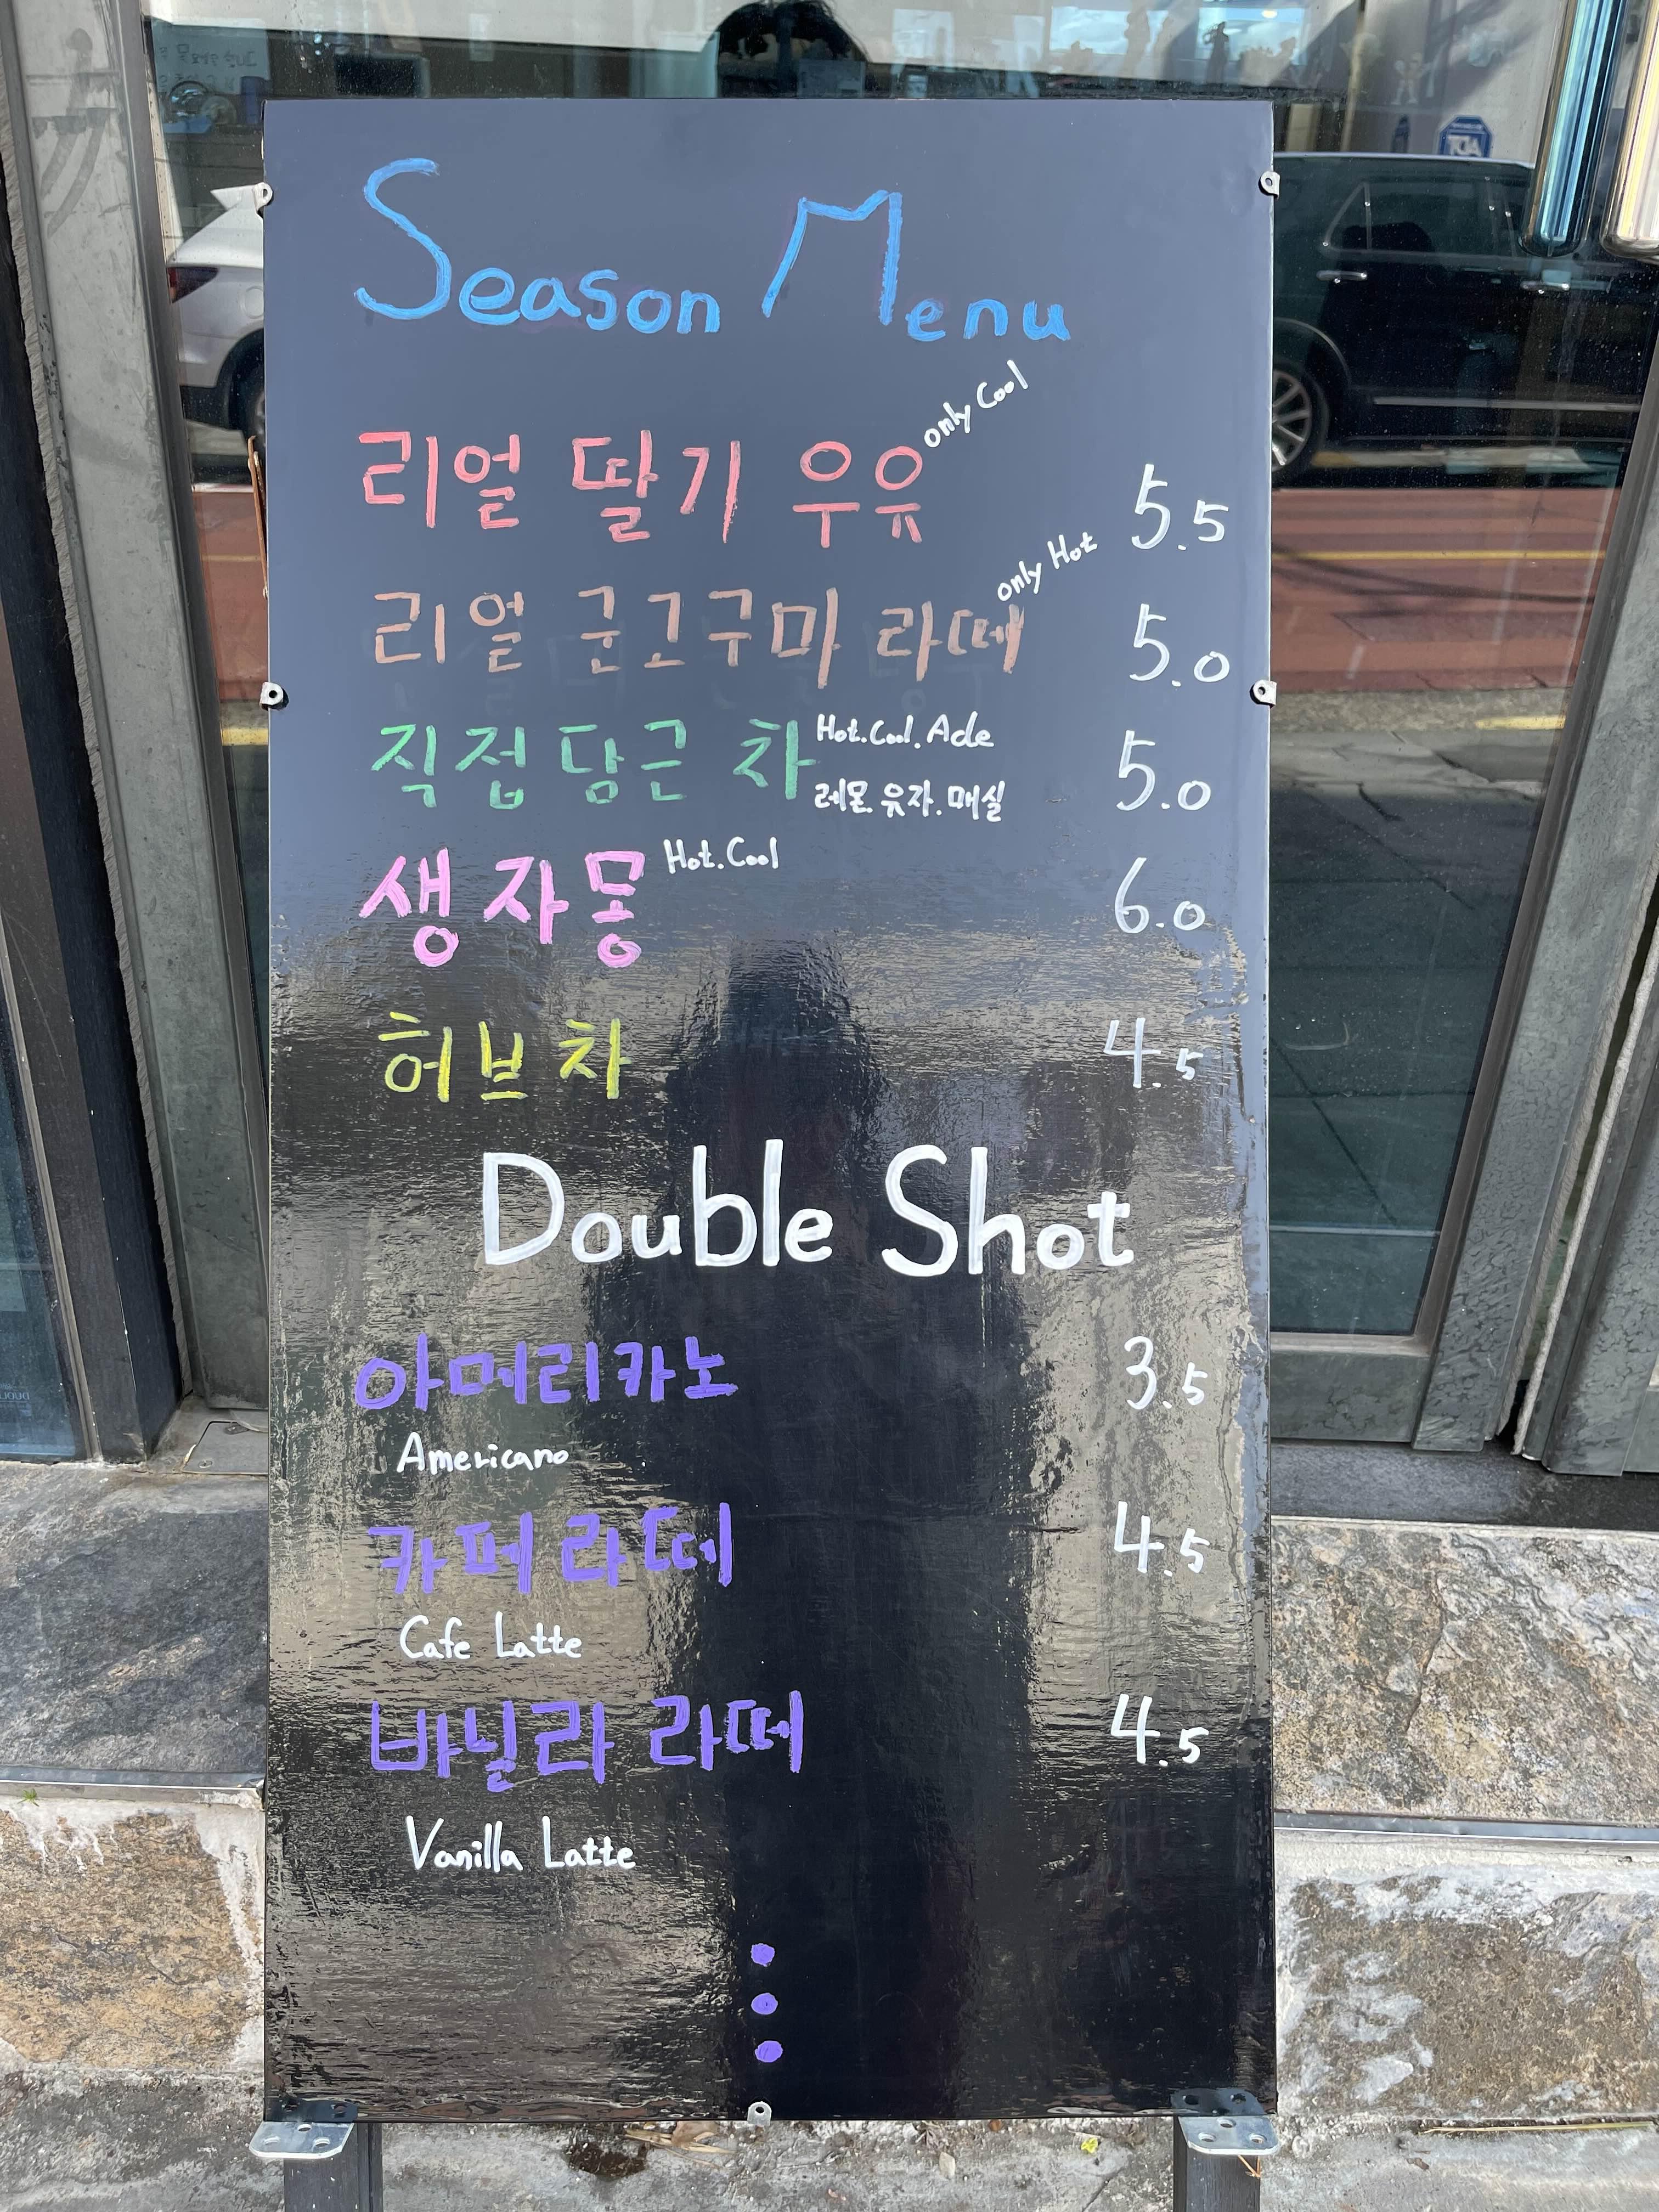 Season Menu
리얼 딸기 우유 only Cool 5.5
리얼 군고구마 라떼 only Hot 5.0
직접담근 차 Hot. Cool. Ade 5.0
레몬. 유자. 매실
생 자몽 Hot. Cool 6.0
허브차 4.5
Double Shot
아메리카노 3.5
Americano
카페라떼 4.5
Cafe Latte
바닐라 라떼 4.5
Vanilla Latte
ADT